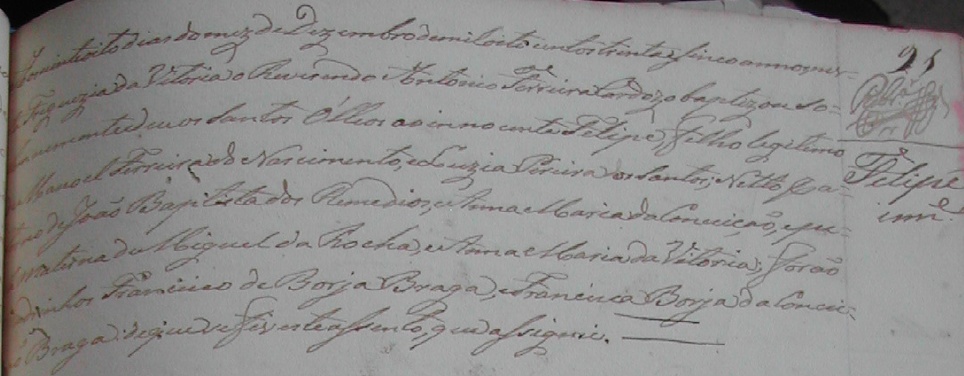 vinte oito dias do mez de Dezembro de mil oito centos trinta e sinco annos, nes-
Freguezia da Vitoria o Reverendo Antonio Ferreira Cardozo baptizou So-
lenemente e deu os Santos Óllios ao innocente Felipe, filho legitimo
Manoel Ferreira do Nascimento, e Luzia Pereira dos Santos; Netto pa-
terno de João Baptista dos Remedios, e Anna Maria da Conceicão, e pu-
materna de Miguel da Rocha, e Anna Maria da Vitoria; forão
Padrinhos Francisco de Borja Braga, e Francisca Borja da Concei-
Braga: de que se fez este assento, que assignei.
Felipe
inn.e